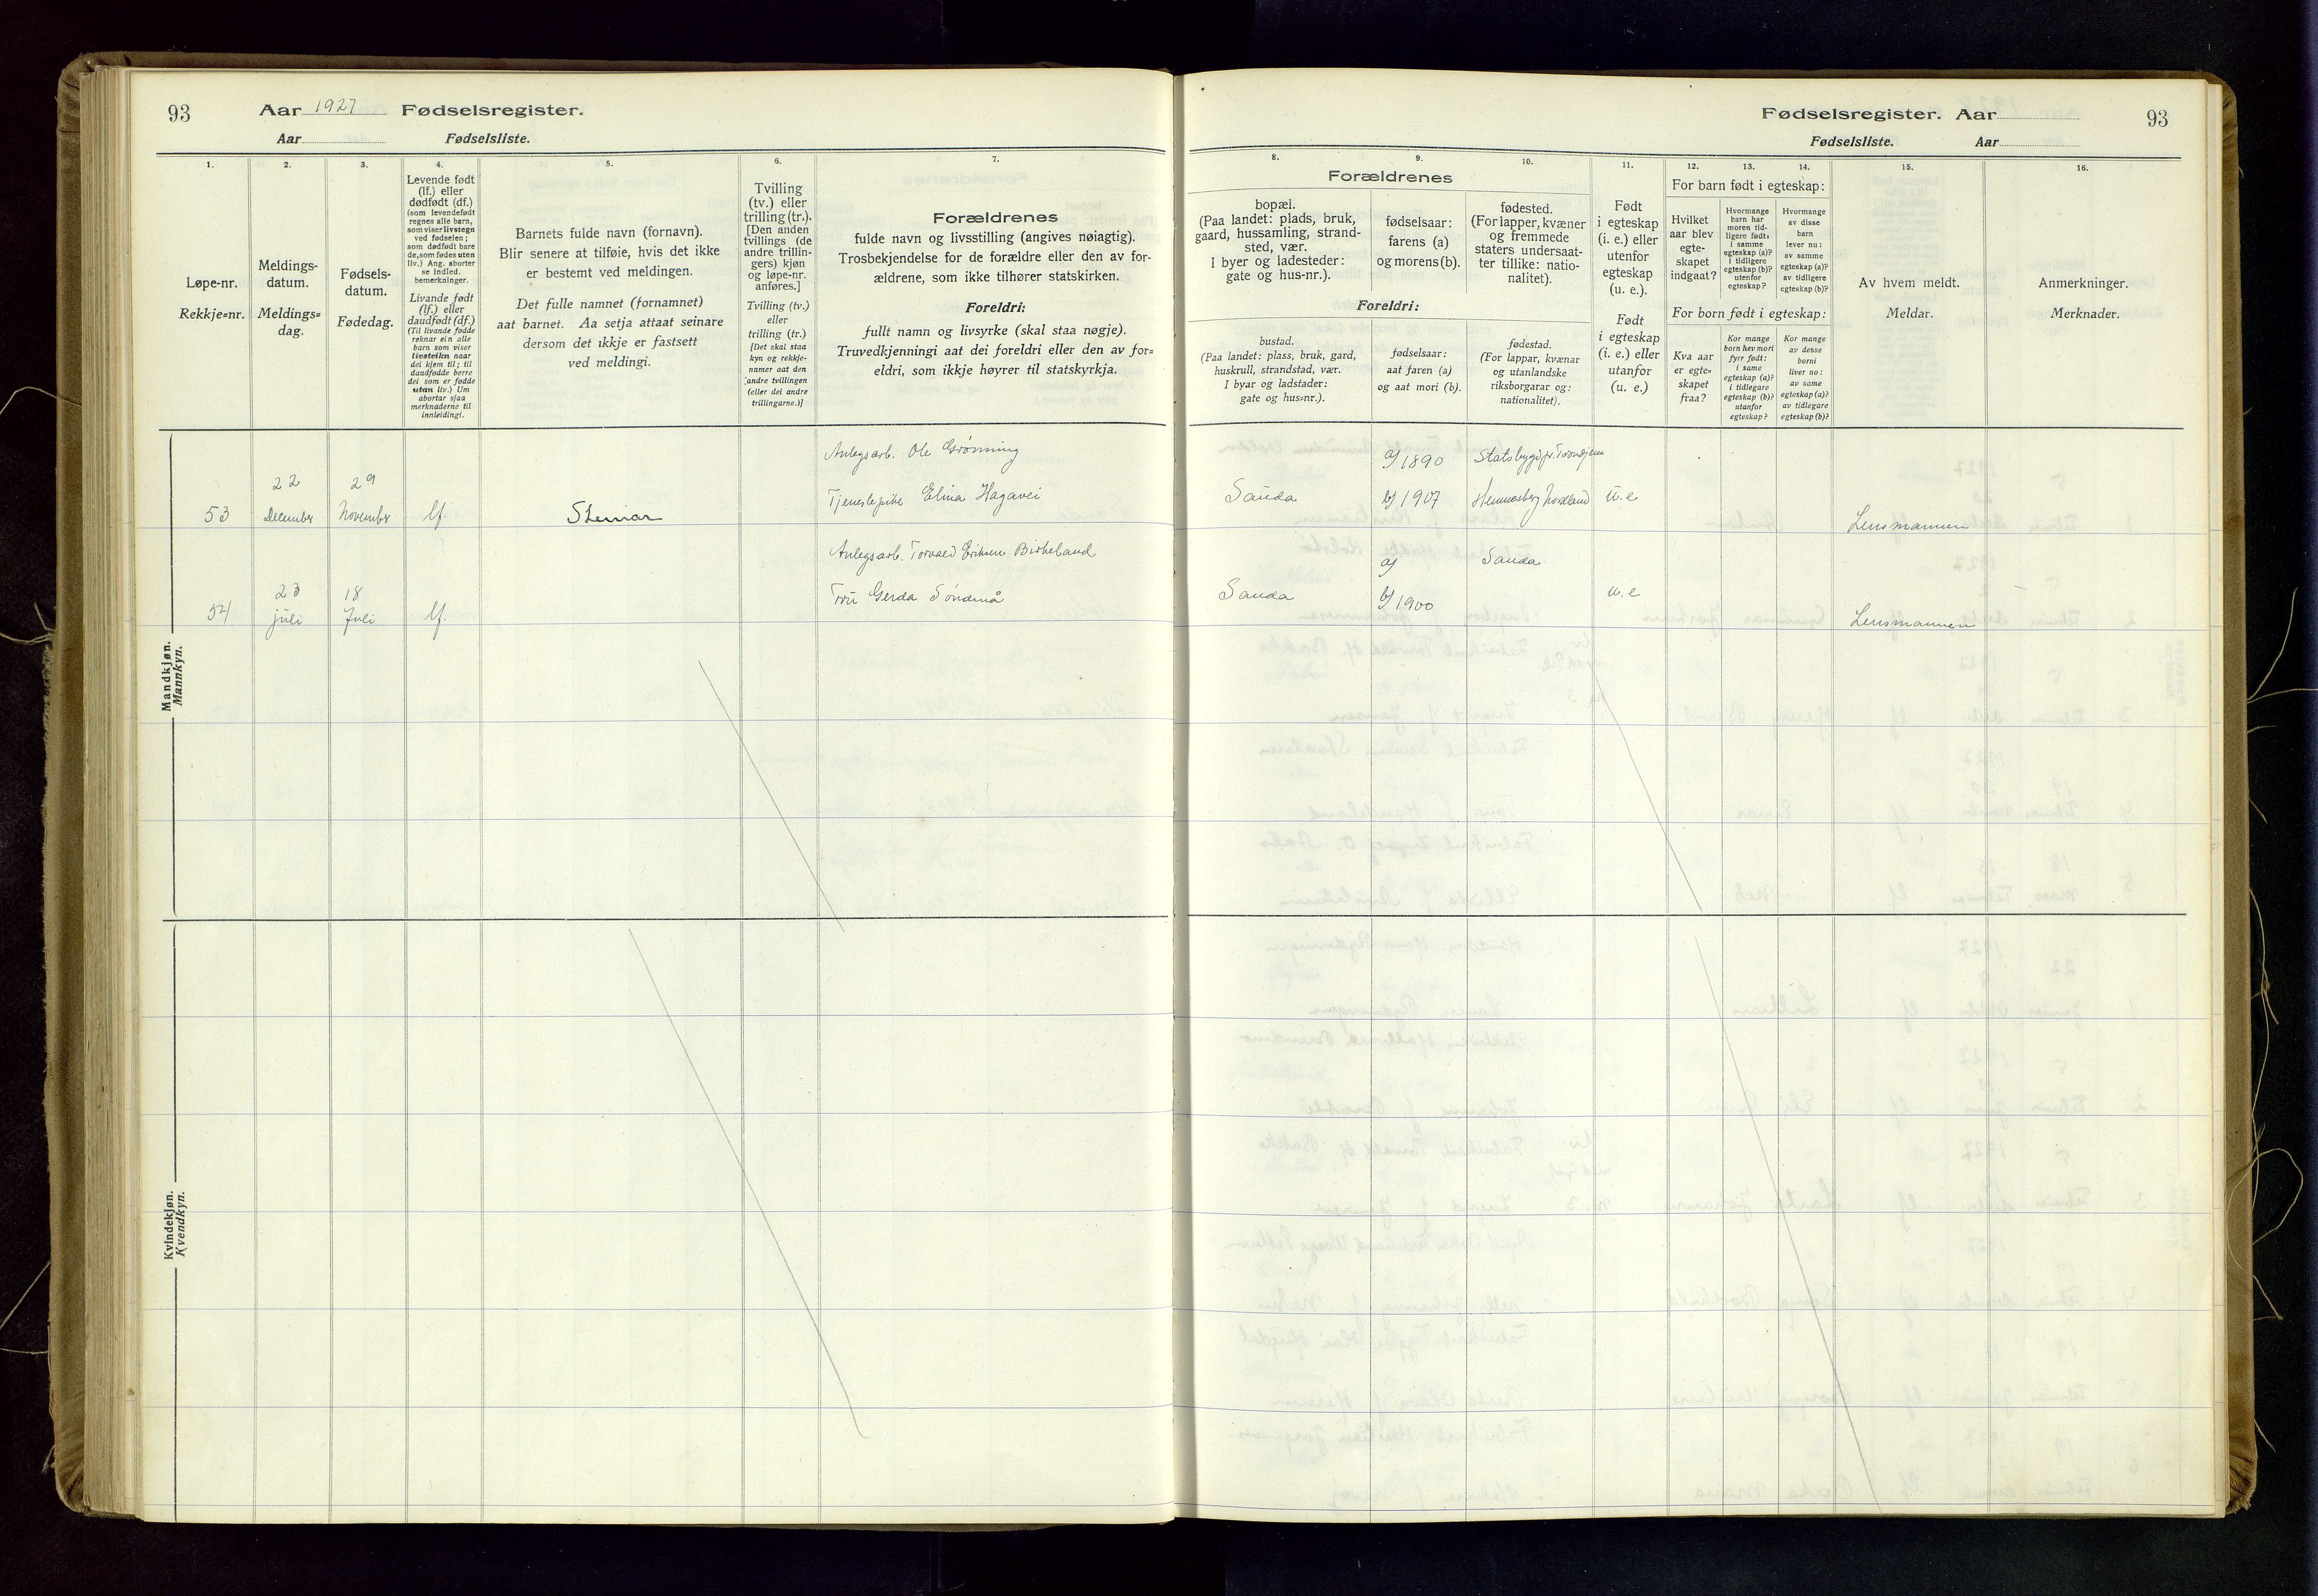 93
Aar 1927 Fødselsregister.
Aar Fødselsliste.
1.
Løpe-nr.
Rekkje=nr.
2.
Meldings-
datum.
Meldings=
dag.
3.
Fødsels-
datum.
Fødedag.
4.
Levende født
(lf.) eller
dødfødt (df.)
(som levendefødt
regnes alle barn,
som viser livstegn
ved fødselen;
som dødfødt bare
de, som fødes uten
liv.) Ang. aborter
se indled.
bemerkninger.
Livande født
(lf.) eller
daudfødt (df.)
(Til livande fødde
reknar ein alle
barn som viser
livsteikn naar
dei kjem til; til
daudfødde berre
dei som er fødde
utan liv.) Um
abortar sjaa
merknaderne til
innleidingi.
5.
Barnets fulde navn (fornavn).
Blir senere at tilføie, hvis det ikke
er bestemt ved meldingen.
Det fulle namnet (fornamnet)
aat barnet. Aa setja attaat seinare
dersom det ikkje er fastsett
ved meldingi.
6.
Tvilling
(tv.) eller
trilling (tr.).
[Den anden
tvillings (de
andre trillin-
gers) kjøn
og løpe-nr.
anføres.]
Tvilling (tv.)
eller
trilling (tr.)
[Det skal staa
kyn og rekkje-
numer aat den
andre tvillingen
(eller dei andre
trillingarne.)]
7.
Forældrenes
fulde navn og livsstilling (angives nøiagtig).
Trosbekjendelse for de forældre eller den av for-
ældrene, som ikke tilhører statskirken.
Foreldri:
fullt namn og livsyrke (skal staa nøgje).
Truvedkjenningi aat dei foreldri eller den av for=
eldri, som ikkje høyrer til statskyrkja.
Mandkjøn.
Mannkyn.
Anlegsarb. Ole Grønning
22 29
Tjenestepike Elina Hagavei
53 December November lf. Steinar
Anlegsarb. Torvald Eriksen Birkeland
23 18
Gerda
54 juli Juli lf.
Kvindekjøn.
Kvendkyn.
Fødselsregister. Aar 93
Fødselsliste. Aar
8.
Forældrenes
bopæl.
(Paa landet: plads, bruk,
gaard, hussamling, strand-
sted, vær.
I byer og ladesteder:
gate og hus-nr.).
Foreldri:
bustad.
(Paa landet: plass, bruk, gard,
huskrull, strandstad, vær.
I byar og ladstader:
gate og hus=nr.).
9.
fødselsaar:
farens (a)
og morens (b).
fødselsaar:
aat faren (a)
og aat mori (b).
10.
fødested.
(For lapper, kvæner
og fremmede
staters undersaat-
ter tillike: natio-
nalitet).
fødestad.
(For lappar, kvænar
og utanlandske
riksborgarar og:
nationalitet).
11.
Født
i egteskap
(i. e.) eller
utenfor
egteskap
(u. e.).
Født
i egteskap
(i. e.) eller
utanfor
(u. e.)
12. 13. 14.
For barn født i egteskap:
Hvilket
aar blev
egte-
skapet
indgaat?
Hvormange
barn har
moren tid-
ligere født:
i samme
egteskap (a)?
i tidligere
egteskap (b)?
utenfor
egteskap?
Hvormange
av disse
barn
lever nu:
av samme
egteskap (a)?
av tidligere
egteskap (b)?
For born født i egteskap:
Kva aar
er egte=
skapet
fraa?
Kor mange
born hev mori
fyrr født:
i same
egteskap (a)?
i tidlegare
egteskap (b)?
utanfor
egteskap?
Kor mange
av desse
borni
liver no:
av same
egteskap (a)?
av tidlegare
egteskap (b)?
15.
Av hvem meldt.
Meldar.
16.
Anmerkninger.
Merknader.
a) 1890
Sauda b) 1907 u.e
Lensmannen
a) Sauda
Sauda b) 1900 u.e
Lensmannen